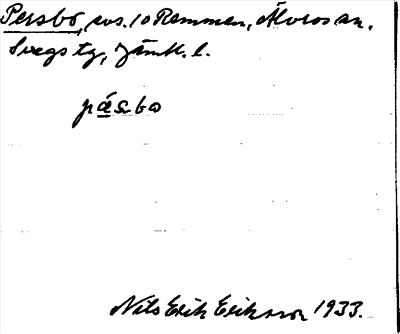 Persbo, avs. 10 Remmen, Älvros sn.
Svegs tg, Jämtl. l.
pásbo
Nils Erik Eriksson 1933.